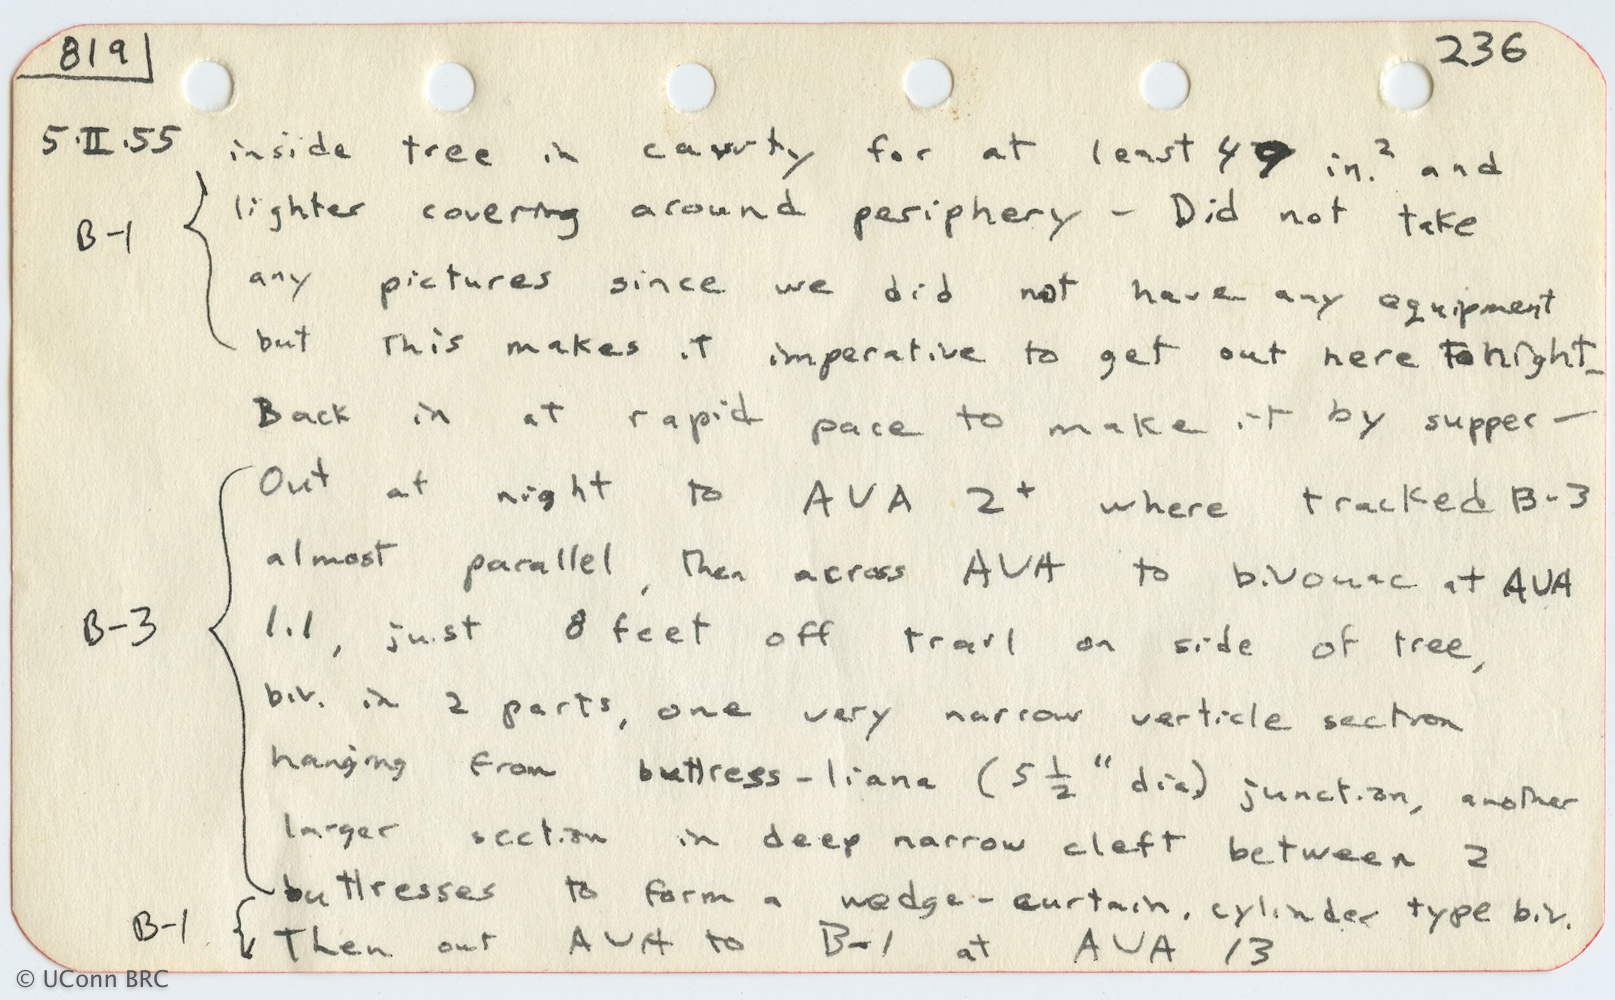 819
236
5.II.55 inside tree in cavity for at least 49 in.² and
lighter covering around periphery - Did not take
B-1
any pictures since we did not have any equipment
but this makes it imperative to get out here tonight-
Back in at rapid pace to make it by supper -
Out at night to AVA 2+ where tracked B-3
almost parallel, then across AVA to bivouac at AVA
B-3 1.1, just 8 feet off trail on side of tree,
biv. in 2 parts, one very narrow verticle section
hanging from buttress-liana (5 1/2" dia) junction, another
larger section in deep narrow cleft between 2
buttresses to form a wedge-curtain, cylinder type biv.
B-1 Then out AVA to B-1 at AVA 13
© UConn BRC